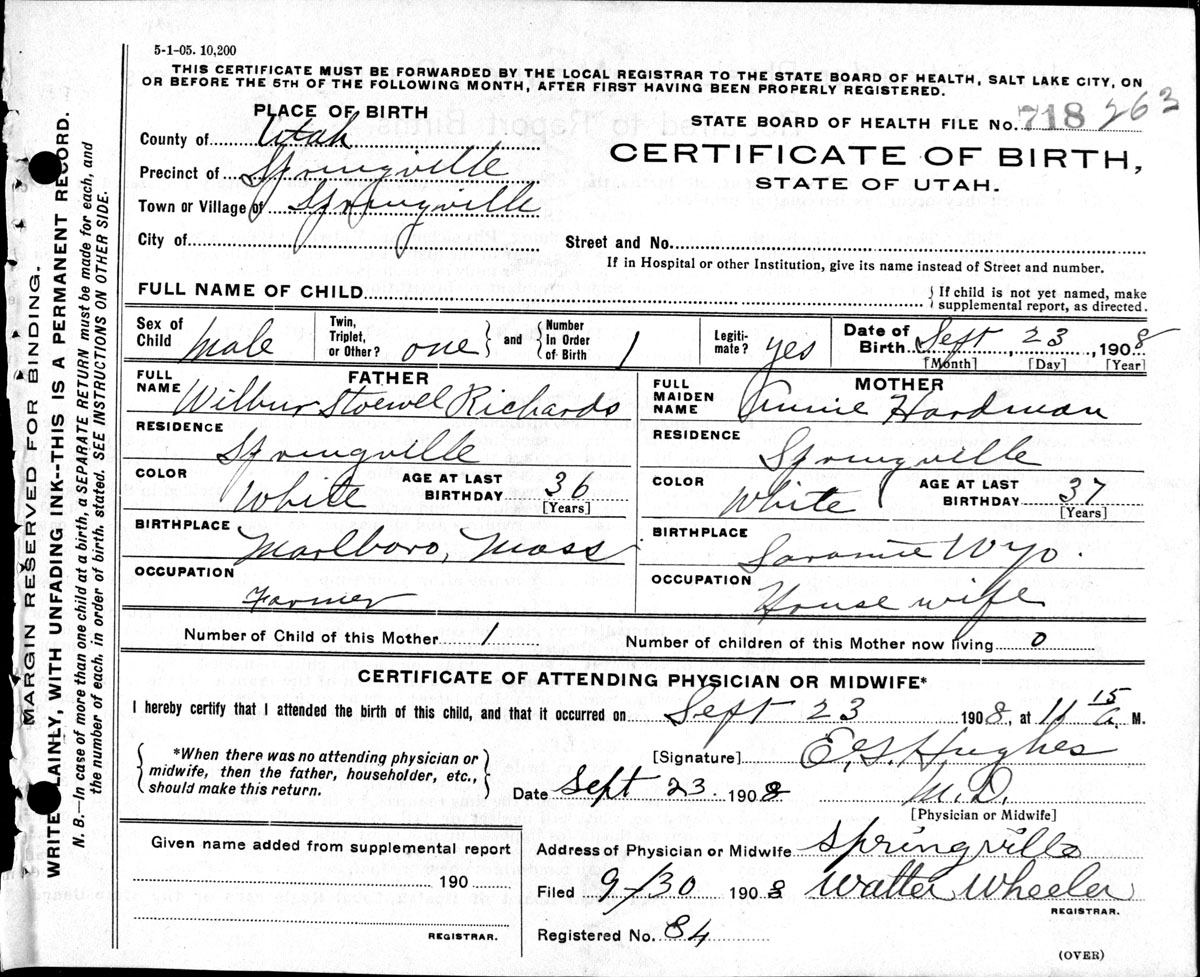 5-1-05. 10,200
THIS CERTIFICATE MUST BE FORWARDED BY THE LOCAL REGISTRAR TO THE STATE BOARD OF HEALTH, SALT LAKE CITY, ON
OR BEFORE THE 5TH OF THE FOLLOWING MONTH, AFTER FIRST HAVING BEEN PROPERLY REGISTERED.
PLACE OF BIRTH
County of Utah
Precinct of Springville
Town or Village of Springville
City of
STATE BOARD OF HEALTH FILE No. 718 263
CERTIFICATE OF BIRTH,
STATE OF UTAH.
Street and No.
If in Hospital or other Institution, give its name instead of Street and number.
FULL NAME OF CHILD
{ If child is not yet named, make
supplemental report, as directed.
Sex of Child Male
Twin, Triplet, or Other? one } and { Number In Order of Birth 1
Legiti-mate? yes
Date of Birth Sept 23 1908
[Month] [Day] [Year]
FATHER
FULL NAME Wilbur Stoewel Richards
RESIDENCE
Springville
COLOR White AGE AT LAST BIRTHDAY 36
[Years]
BIRTHPLACE
Marlboro, Mass
OCCUPATION
Farmer
MOTHER
FULL MAIDEN NAME Annie Hardman
RESIDENCE
Springville
COLOR White AGE AT LAST BIRTHDAY 37
[Years]
BIRTHPLACE
Laramie Wyo.
OCCUPATION
House wife
Number of Child of this Mother 1 Number of children of this Mother now living 0
CERTIFICATE OF ATTENDING PHYSICIAN OR MIDWIFE*
I hereby certify that I attended the birth of this child, and that it occurred on Sept 23 1908, at 11 15 a. M.
{ *When there was no attending physician or
midwife, then the father, householder, etc.,
should make this return. }
[Signature] E, G, Hughes
Date Sept 23. 1908 M.D.
[Physician or Midwife]
Given name added from supplemental report
190
REGISTRAR.
Address of Physician or Midwife Springville
Filed 9/30 1908 Walter Wheeler
REGISTRAR.
Registered No. 84
(OVER)
MARGIN RESERVED FOR BINDING.
WRITE LAINLY, WITH UNFADING INK--THIS IS A PERMANENT RECORD.
N. B.—In case of more than one child at a birth, a SEPARATE RETURN must be made for each, and
the number of each, in order of birth, stated. SEE INSTRUCTIONS ON OTHER SIDE.